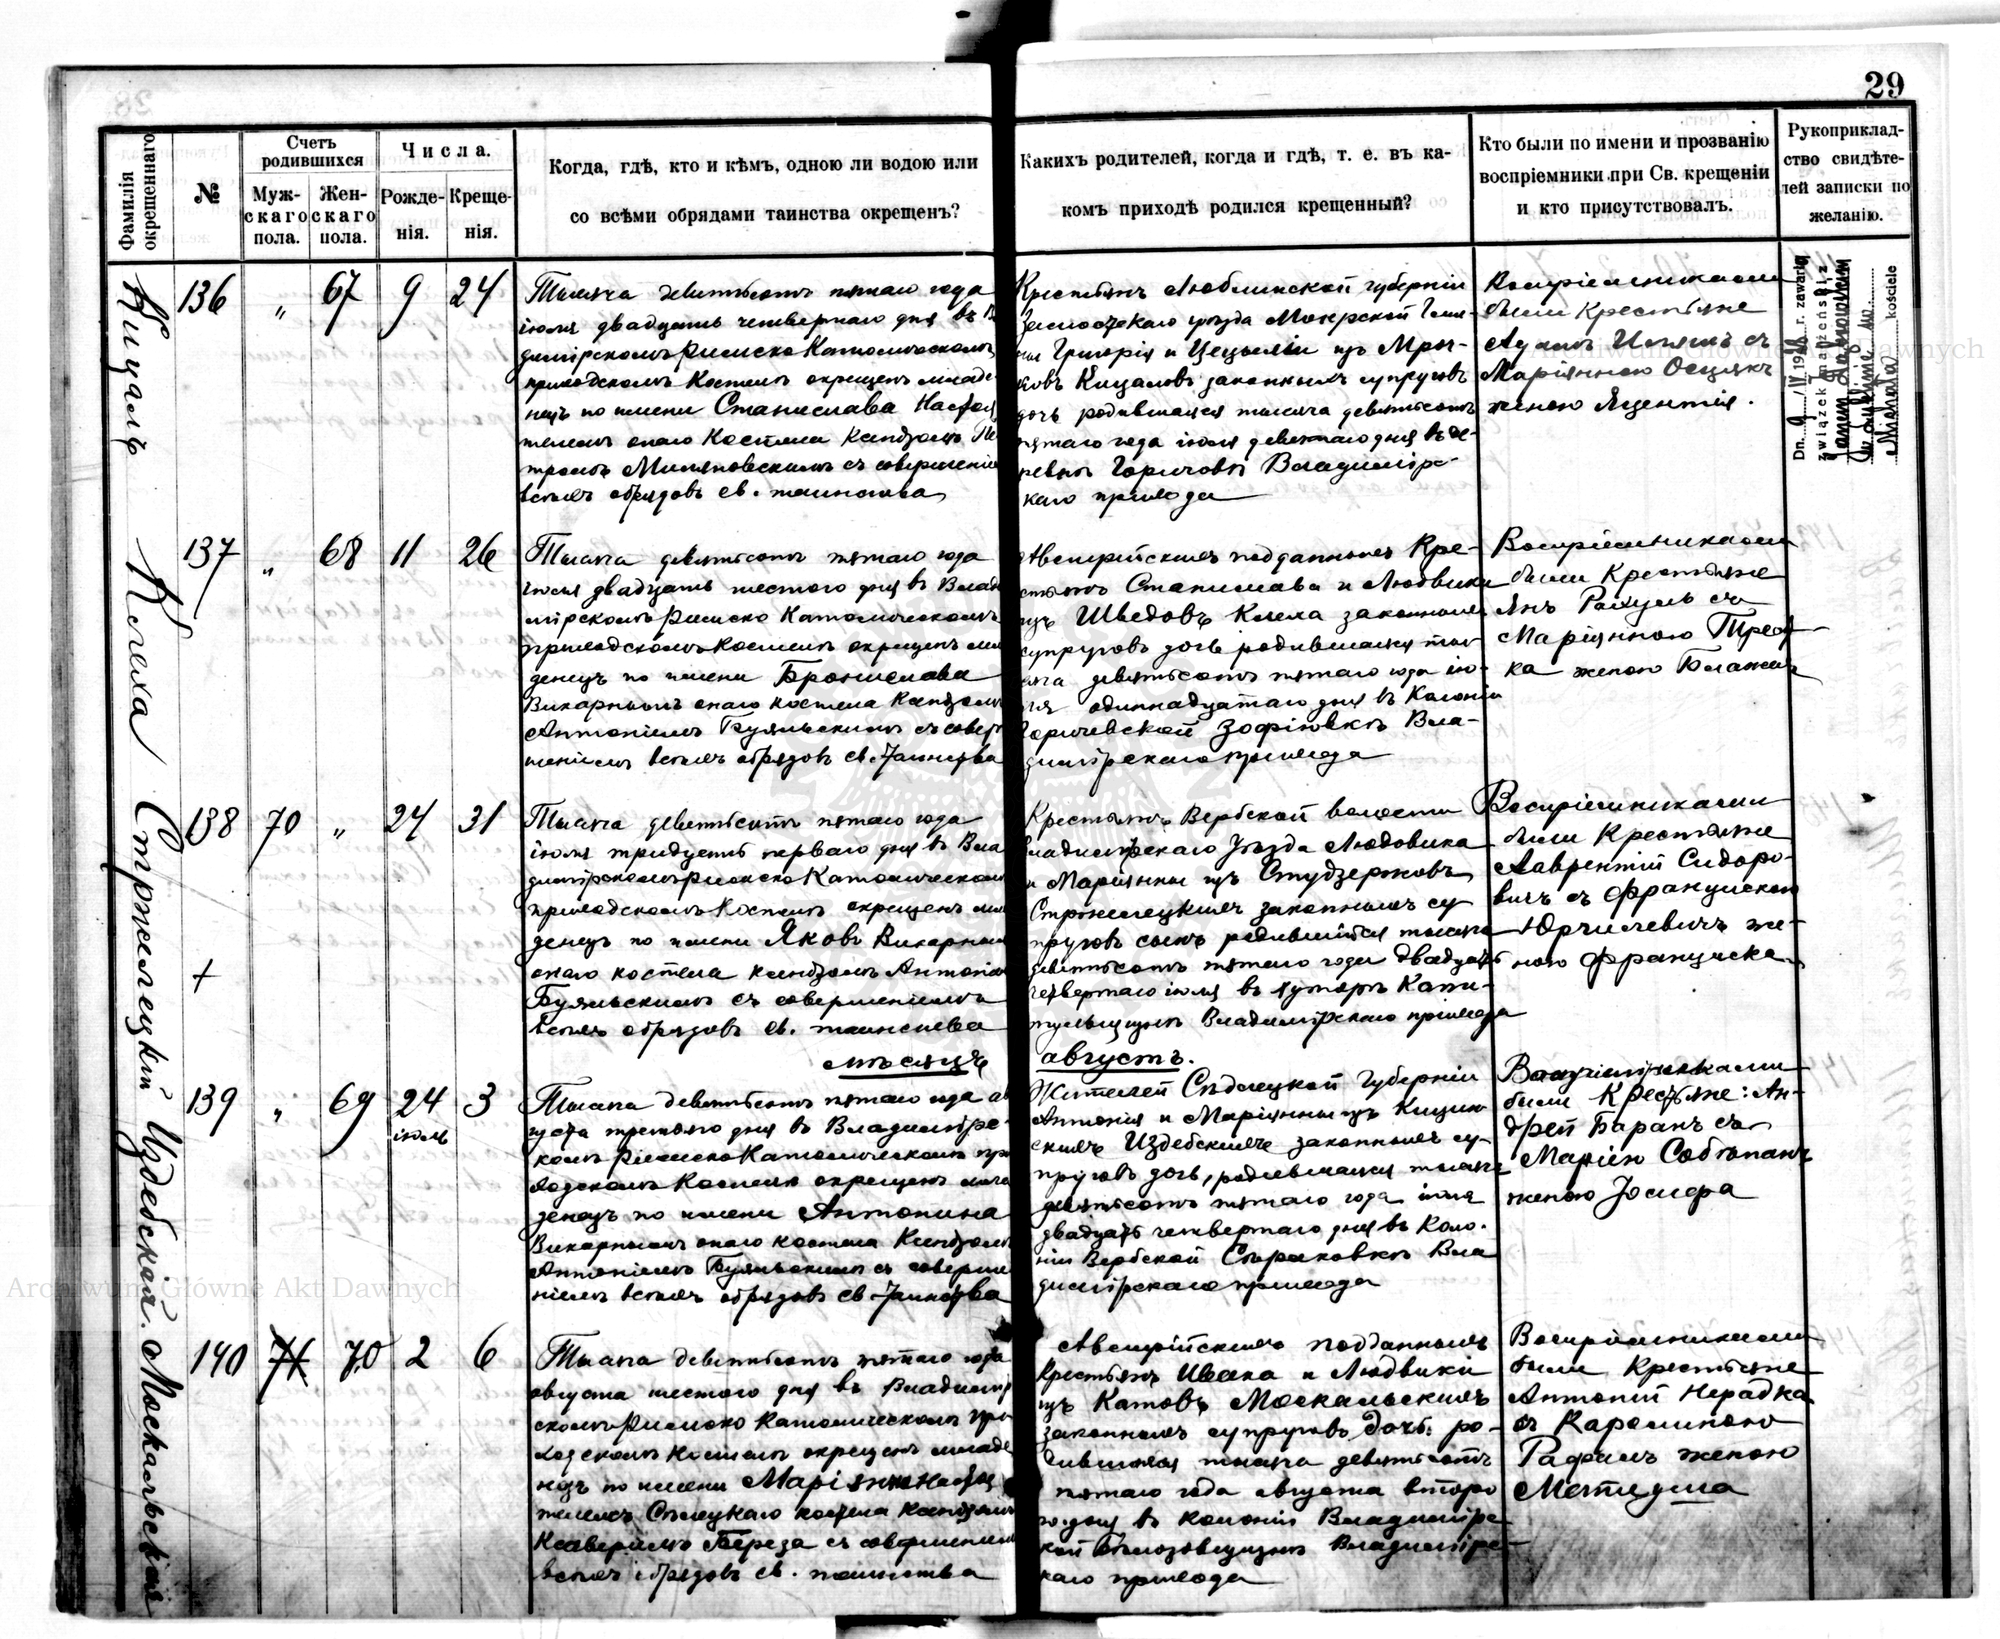 29
Фамилія окрещеннаго
№
Счетъ родившихся
Мужскаго пола.
Женскаго пола.
Числа.
Рожденія.
Крещенія.
Когда, гдѣ, кто и кѣмъ, одною ли водою или
со всѣми обрядами таинства окрещенъ?
Какихъ родителей, когда и гдѣ, т. е. въ ка-
комъ приходѣ родился крещенный?
Кто были по имени и прозванію
воспріемники при Св. крещеніи
и кто присутствовалъ.
Рукоприклад-
ство свидѣте-
лей записки по
желанію.
Кицалъ
136 „ 67 9 24
Тысяча девятьсотъ пятаго года
іюля двадцать четвертаго дня въ В
димірскомъ Римско Католическомъ
приходскомъ Костелѣ окрещенъ младе-
нецъ по имени Станислава Настоя
телемъ онаго Костела Ксендзомъ Пе
тромъ Миляновскимъ съ совершеніе
всѣхъ обрядовъ св. таинства
Крестьянъ Люблинской губерніи
Замостскаго уѣзда Мокрской Гми-
ны Григорія и Цециліи изъ Мроч-
ковъ Кицаловъ законныхъ супруговъ
дочь родившаяся тысяча девятьсотъ
пятаго года іюля девятаго дня въ де-
ревнѣ Горичовѣ Владимірс-
каго прихода
Воспріемниками
были Крестьяне
Адамъ съ
Маріянною Осцякъ
женою Яцентія.
Dn. 9/IV 19 r. zawarła
związek małżeński z
Janem
w Lublinie
kościele
Клеха
137 „ 68 11 26
Тысяча девятьсотъ пятаго года
іюля двадцать шестого дня въ Влад
мірскомъ Римско Католическомъ
приходскомъ Костелѣ окрещенъ мла
денецъ по имени Бронислава
Викарнымъ онаго костела Ксендзомъ
Антоніемъ Буяльскимъ съ совер
шеніемъ всѣхъ обрядовъ св. Таинства
Австрійскихъ подданныхъ Кре-
стьянъ Станислава и Людвики
изъ Шведовъ Клеха законныхъ
супруговъ дочь родившаяся тыс
яча девятьсотъ пятаго года ію-
ля одиннадцатаго дня въ Колоніи
Горичевской Зофіовкѣ Вла-
димірскаго прихода
Воспріемниками
были Крестьяне
Янъ съ
Маріянною
ка женою Блажея
Стржелецкій
138 70 „ 24 31
+
Тысяча девятьсотъ пятаго года
іюля тридцать перваго дня въ Вла
димірскомъ Римско Католическомъ
приходскомъ Костелѣ окрещенъ мла
денецъ по имени Яковъ Викарным
онаго костела ксендзомъ Антоніем
Буяльскимъ съ совершеніемъ
всѣхъ обрядовъ св. таинства
Крестьянъ Вербской волости
Владимірскаго Уѣзда Людовика
и Маріянны изъ Студзерковъ
Стржелецкихъ законныхъ су-
пруговъ сынъ родившійся тысяча
девятьсотъ пятаго года двадцать
четвертаго іюля въ хуторѣ Капи-
тульщизнѣ Владимірскаго прихода
Воспріемниками
были Крестьяне
Лаврентій Сидоро-
вичъ съ Францишкою
Юрчилевичъ же-
ною Францишка
мѣсяцъ августъ.
Издебская
139 „ 69 24 іюль 3
Тысяча девятьсотъ пятаго года ав
густа третьяго дня въ Владимірс-
комъ Римско Католическомъ при
ходскомъ Костелѣ окрещенъ мла
денецъ по имени Антонина
Викарнымъ онаго костела Ксендзомъ
Антоніемъ Буяльскимъ съ соверше
ніемъ всѣхъ обрядовъ св. Таинства
Жителей Сѣдлецкой Губерніи
Антонія и Маріянны изъ Кицин-
скихъ Издебскихъ законныхъ су-
пруговъ дочь, родившаяся тысяча
девятьсотъ пятаго года іюля
двадцать четвертаго дня въ Коло-
ніи Вербской Вла
димірскаго прихода
Воспріемниками
были Крестьяне: Ан-
дрей Баранъ съ
Маріею
женою Іосифа
Москальская
140 71 70 2 6
Тысяча девятьсотъ пятаго года
августа шестого дня въ Владимір
скомъ Римско Католическомъ при
ходскомъ Костелѣ окрещенъ младе
нецъ по имени Маріянна Настоя
телемъ костела Ксендзомъ
Ксаверіемъ Береза съ совершеніем
всѣхъ обрядовъ св. таинства
Австрійскихъ подданныхъ
Крестьянъ Ивана и Людвики
изъ Катовъ Москальскихъ
законныхъ супруговъ дочь ро-
дившаяся тысяча девятьсотъ
пятаго года августа второ
го дня въ колоніи Владимірс
кой Владимірс-
каго прихода
Воспріемниками
были Крестьяне
Антоній Нерадка
съ Каролиною
женою
Archiwum Główne Akt Dawnych
Archiwum Główne Akt Dawnych